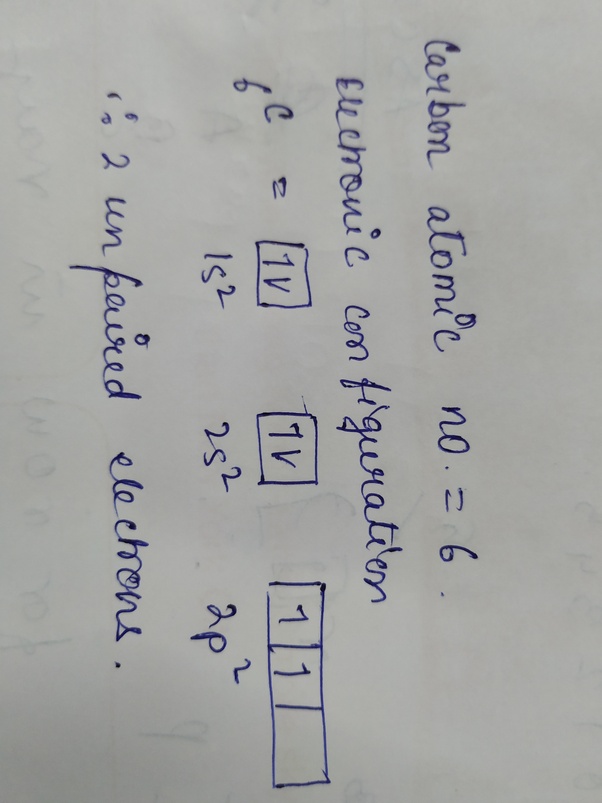 Carbon atomic no. = 6.
Electronic configuration
₆C = 1v 1v 1 1
1s² 2s² 2p²
∴ 2 unpaired electrons.